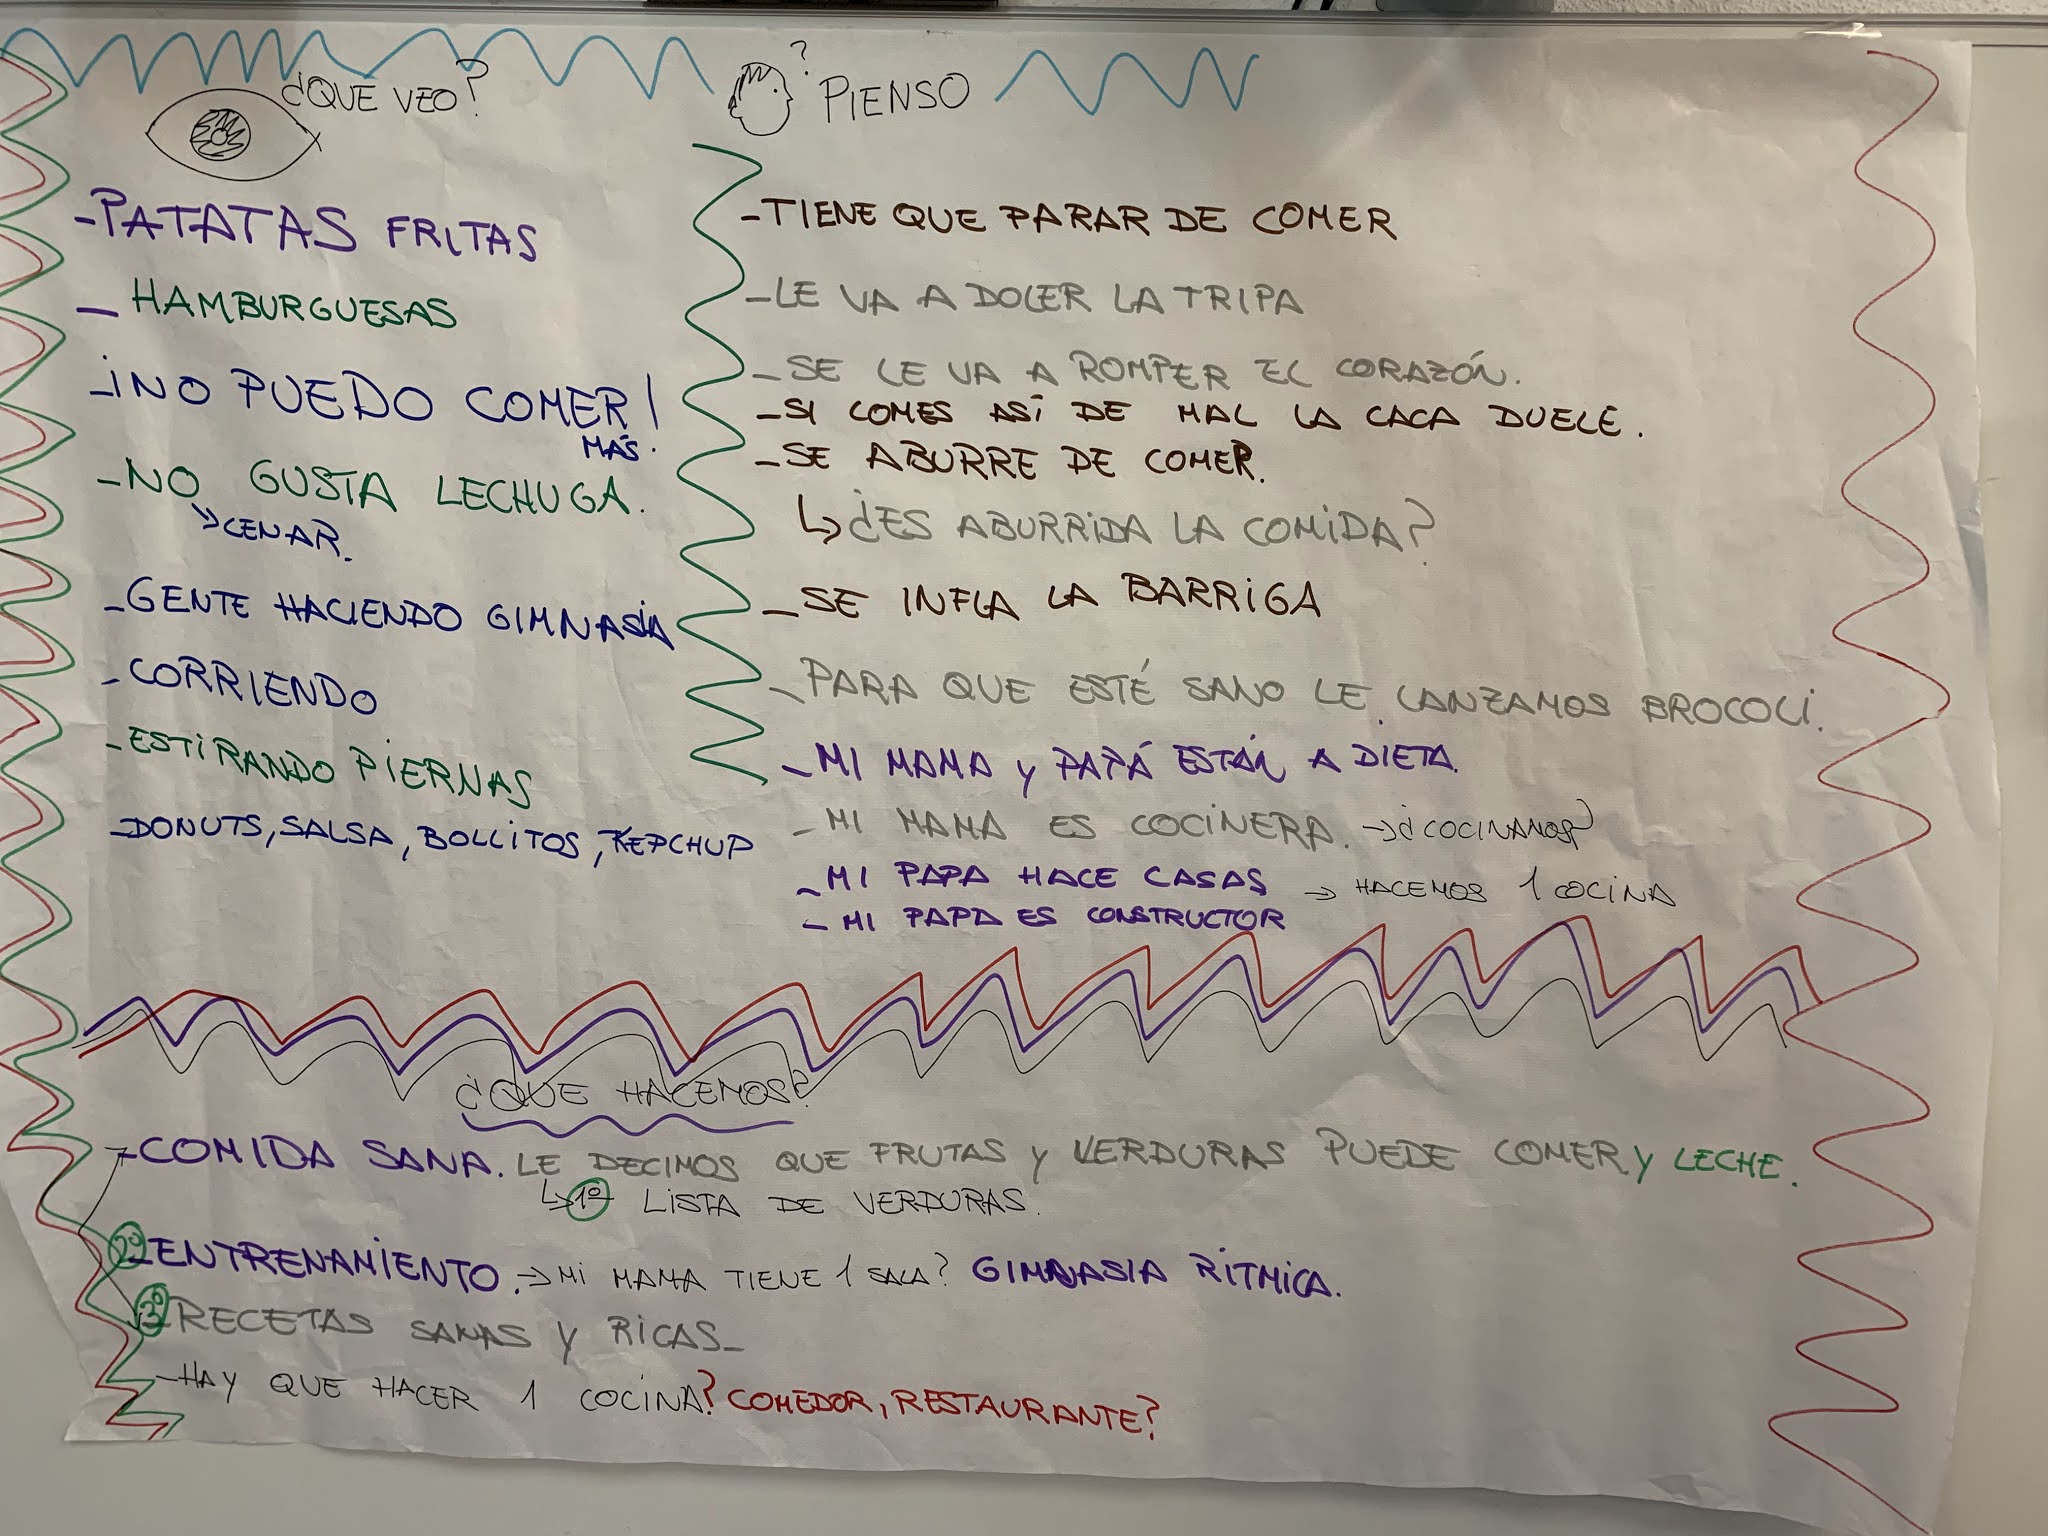 ¿QUE VEO?
-PATATAS FRITAS
- HAMBURGUESAS
-¡NO PUEDO COMER!
MÁS.
-NO GUSTA LECHUGA.
CENAR.
-GENTE HACIENDO GIMNASÍA
-CORRIENDO
-ESTIRANDO PIERNAS
-DONUTS, SALSA, BOLLITOS, KEPCHUP
? PIENSO
-TIENE QUE PARAR DE COMER
-LE VA A DOLER LA TRIPA
-SE LE VA A ROMPER EL CORAZÓN.
-SI COMES ASÍ DE MAL LA CACA DUELE.
-SE ABURRE DE COMER.
↳ ¿ES ABURRIDA LA COMIDA?
-SE INFLA LA BARRIGA
-PARA QUE ESTÉ SANO LE LANZAMOS BROCOLI.
-MI MAMA y PAPÁ ESTÁN A DIETA.
-MI MAMA ES COCINERA. → ¿COCINAMOS?
-MI PAPA HACE CASAS → HACEMOS 1 COCINA
-MI PAPA ES CONSTRUCTOR
¿QUE HACEMOS?
-COMIDA SANA. LE DECIMOS QUE FRUTAS y VERDURAS PUEDE COMER y LECHE.
↳ 1º LISTA DE VERDURAS.
2º ENTRENAMIENTO. → MI MAMA TIENE 1 SALA? GIMNASIA RÍTMICA.
3º RECETAS SANAS y RICAS-
-HAY QUE HACER 1 COCINA? COMEDOR, RESTAURANTE?